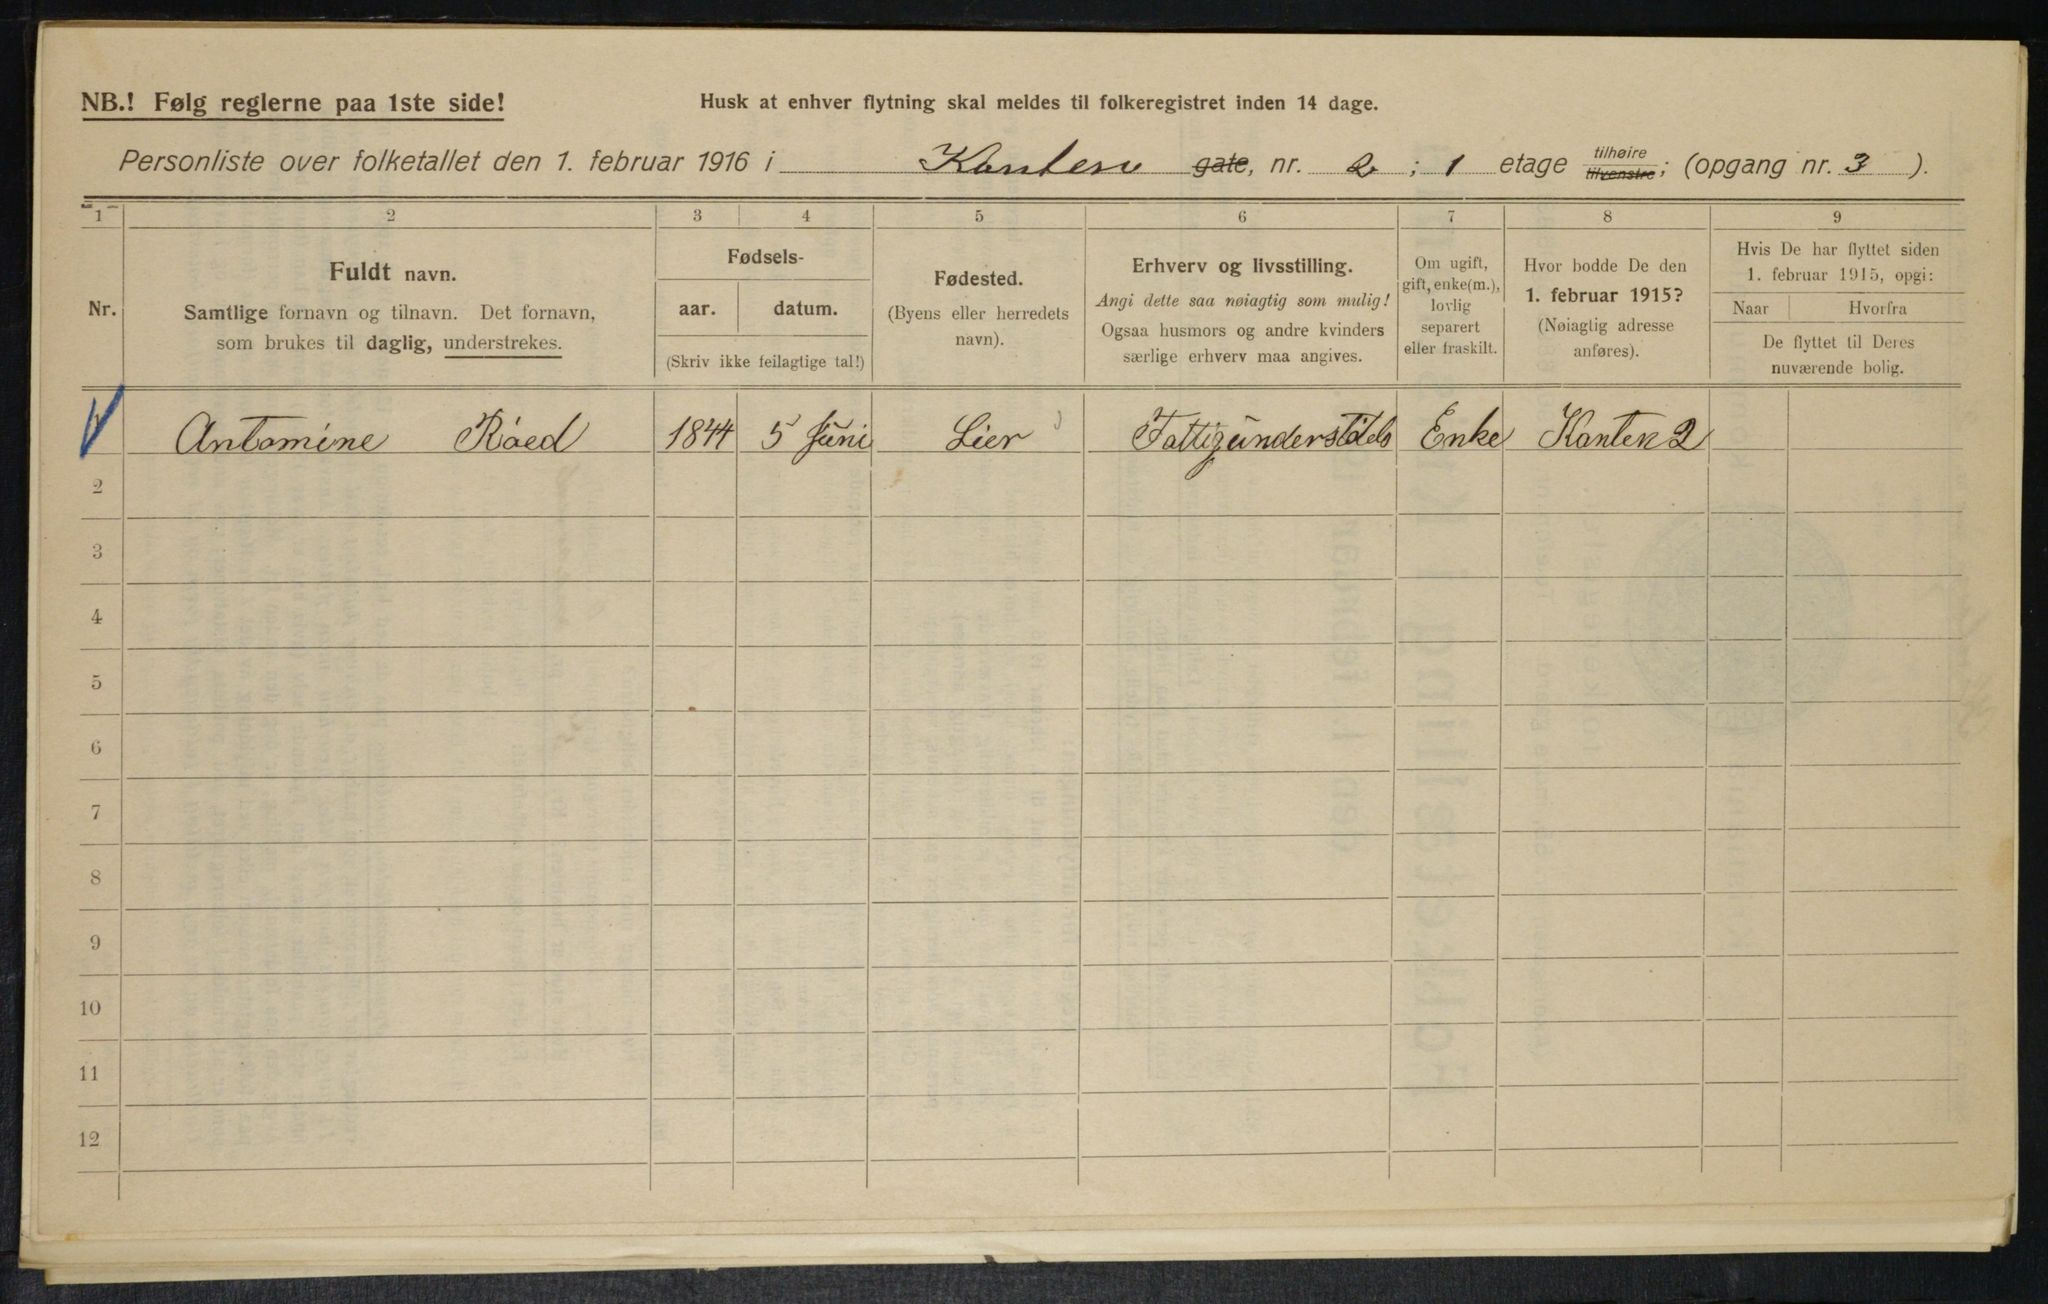 NB.! Følg reglerne paa 1ste side!
Husk at enhver flytning skal meldes til folkeregistret inden 14 dage.
Personliste over folketallet den 1. februar 1916 i Kanten gate, nr. 2 ; 1 etage tilhøire tilvenstre; (opgang nr. 3 ).
1 2 3 4 5 6 7 8 9
Nr.
Fuldt navn.
Samtlige fornavn og tilnavn. Det fornavn,
som brukes til daglig, understrekes.
Fødsels-
aar. datum.
(Skriv ikke feilagtige tal!)
Fødested.
(Byens eller herredets
navn).
Erhverv og livsstilling.
Angi dette saa nøiagtig som mulig!
Ogsaa husmors og andre kvinders
særlige erhverv maa angives.
Om ugift,
gift, enke(m.),
lovlig
separert
eller fraskilt.
Hvor bodde De den
1. februar 1915?
(Nøiagtig adresse
anføres).
Hvis De har flyttet siden
1. februar 1915, opgi:
Naar Hvorfra
De flyttet til Deres
nuværende bolig.
Antomine Röed 1844 5 Juni Lier Fattigünderstöds Enke Kanten 2
2
3
4
5
6
7
8
9
10
11
12